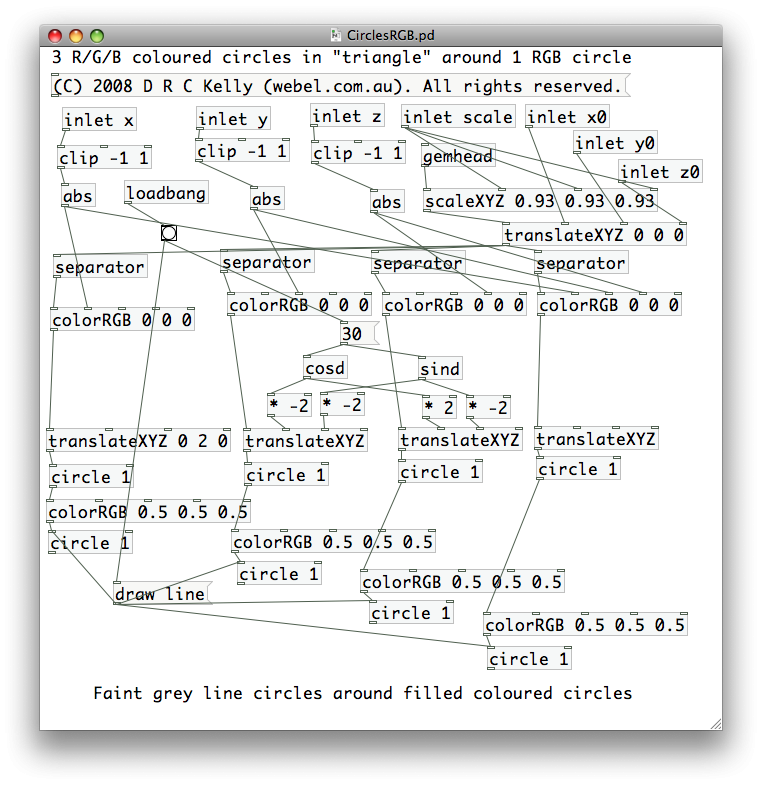 CirclesRGB.pd
3 R/G/B coloured circles in "triangle" around 1 RGB circle
(C) 2008 D R C Kelly (webel.com.au). All rights reserved.
inlet x
inlet y
inlet z
inlet scale
inlet x0
inlet y0
inlet z0
clip -1 1
clip -1 1
clip -1 1
gemhead
abs
loadbang
abs
abs
scaleXYZ 0.93 0.93 0.93
translateXYZ 0 0 0
separator
separator
separator
separator
colorRGB 0 0 0
colorRGB 0 0 0
colorRGB 0 0 0
colorRGB 0 0 0
30
cosd
sind
* -2
* -2
* 2
* -2
translateXYZ 0 2 0
translateXYZ
translateXYZ
translateXYZ
circle 1
circle 1
circle 1
circle 1
colorRGB 0.5 0.5 0.5
circle 1
colorRGB 0.5 0.5 0.5
circle 1
colorRGB 0.5 0.5 0.5
draw line
circle 1
colorRGB 0.5 0.5 0.5
circle 1
Faint grey line circles around filled coloured circles